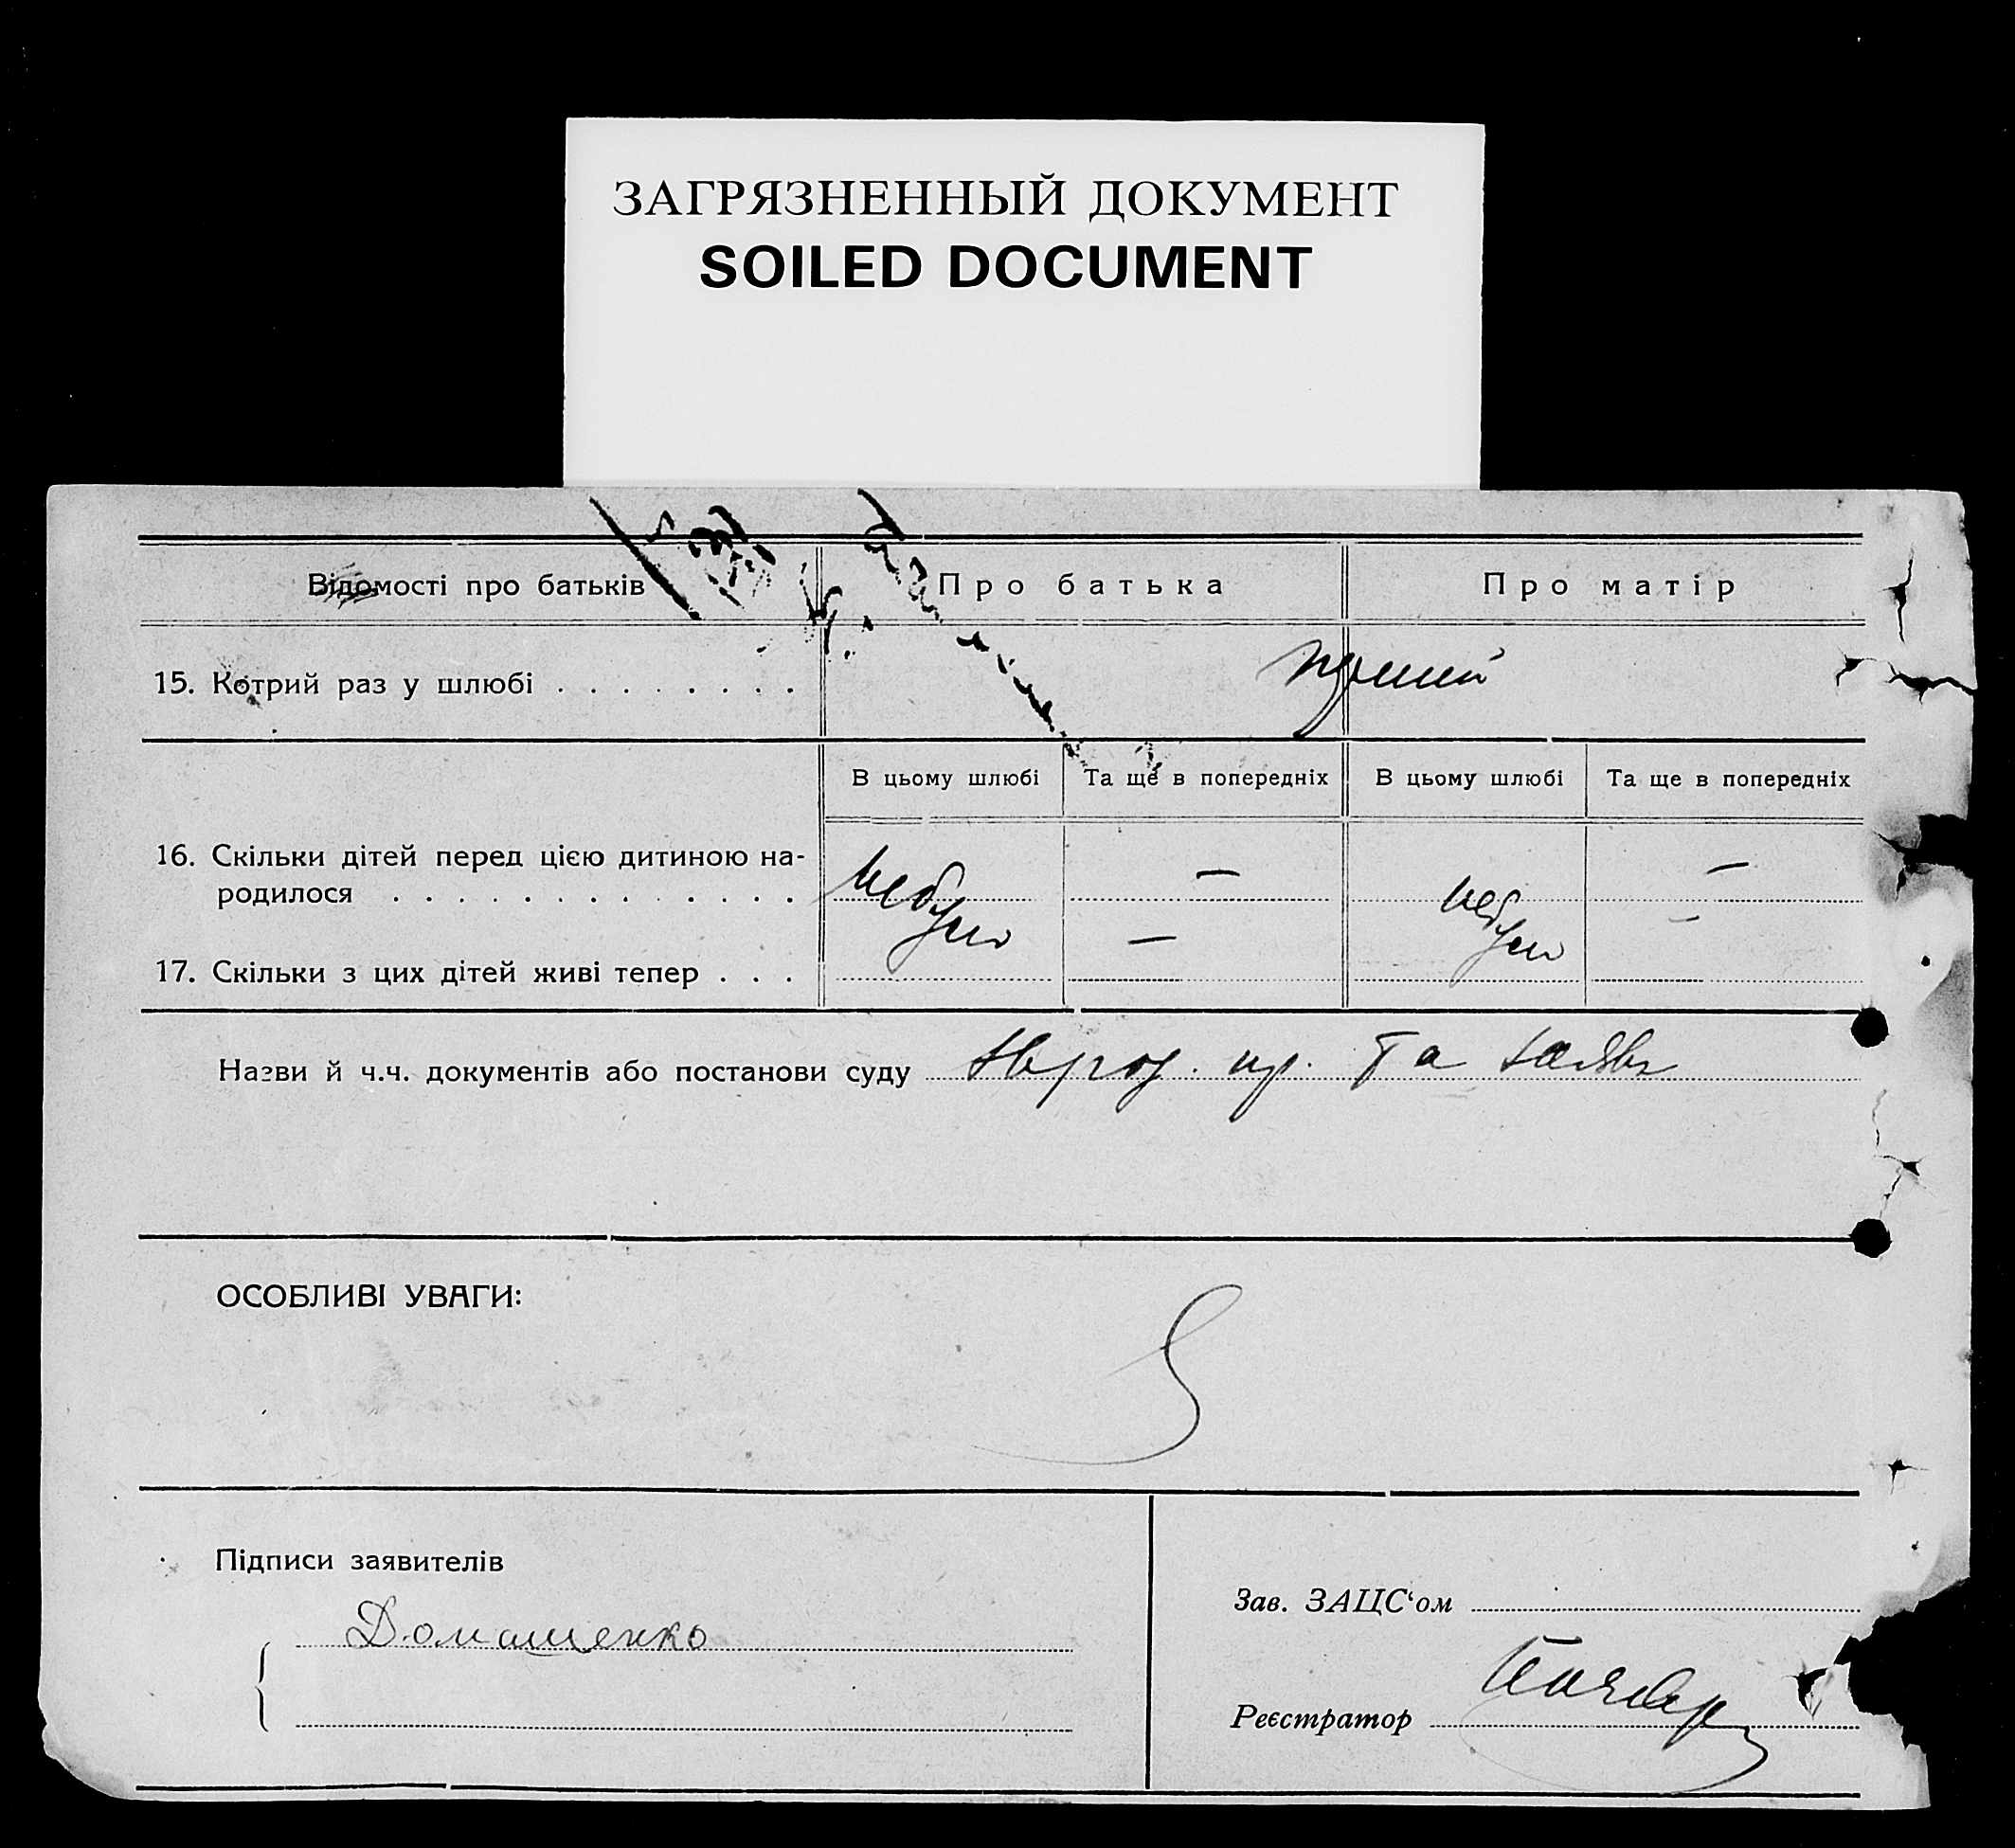 ЗАГРЯЗНЕННЫЙ ДОКУМЕНТ
SOILED DOCUMENT
Відомості про батьків Про батька Про матір
15. Котрий раз у шлюбі . . . . . . . .
В цьому шлюбі Та ще в попередніх В цьому шлюбі Та ще в попередніх
16. Скільки дітей перед цією дитиною на-
родилося . . . . . . . . . . . . . небуло — небуло —
17. Скільки з цих дітей живі тепер . . . — —
Назви й ч.ч. документів або постанови суду та
ОСОБЛИВІ УВАГИ:
Підписи заявителів
Домашенко
Зав. ЗАЦС‘ом
Реєстратор